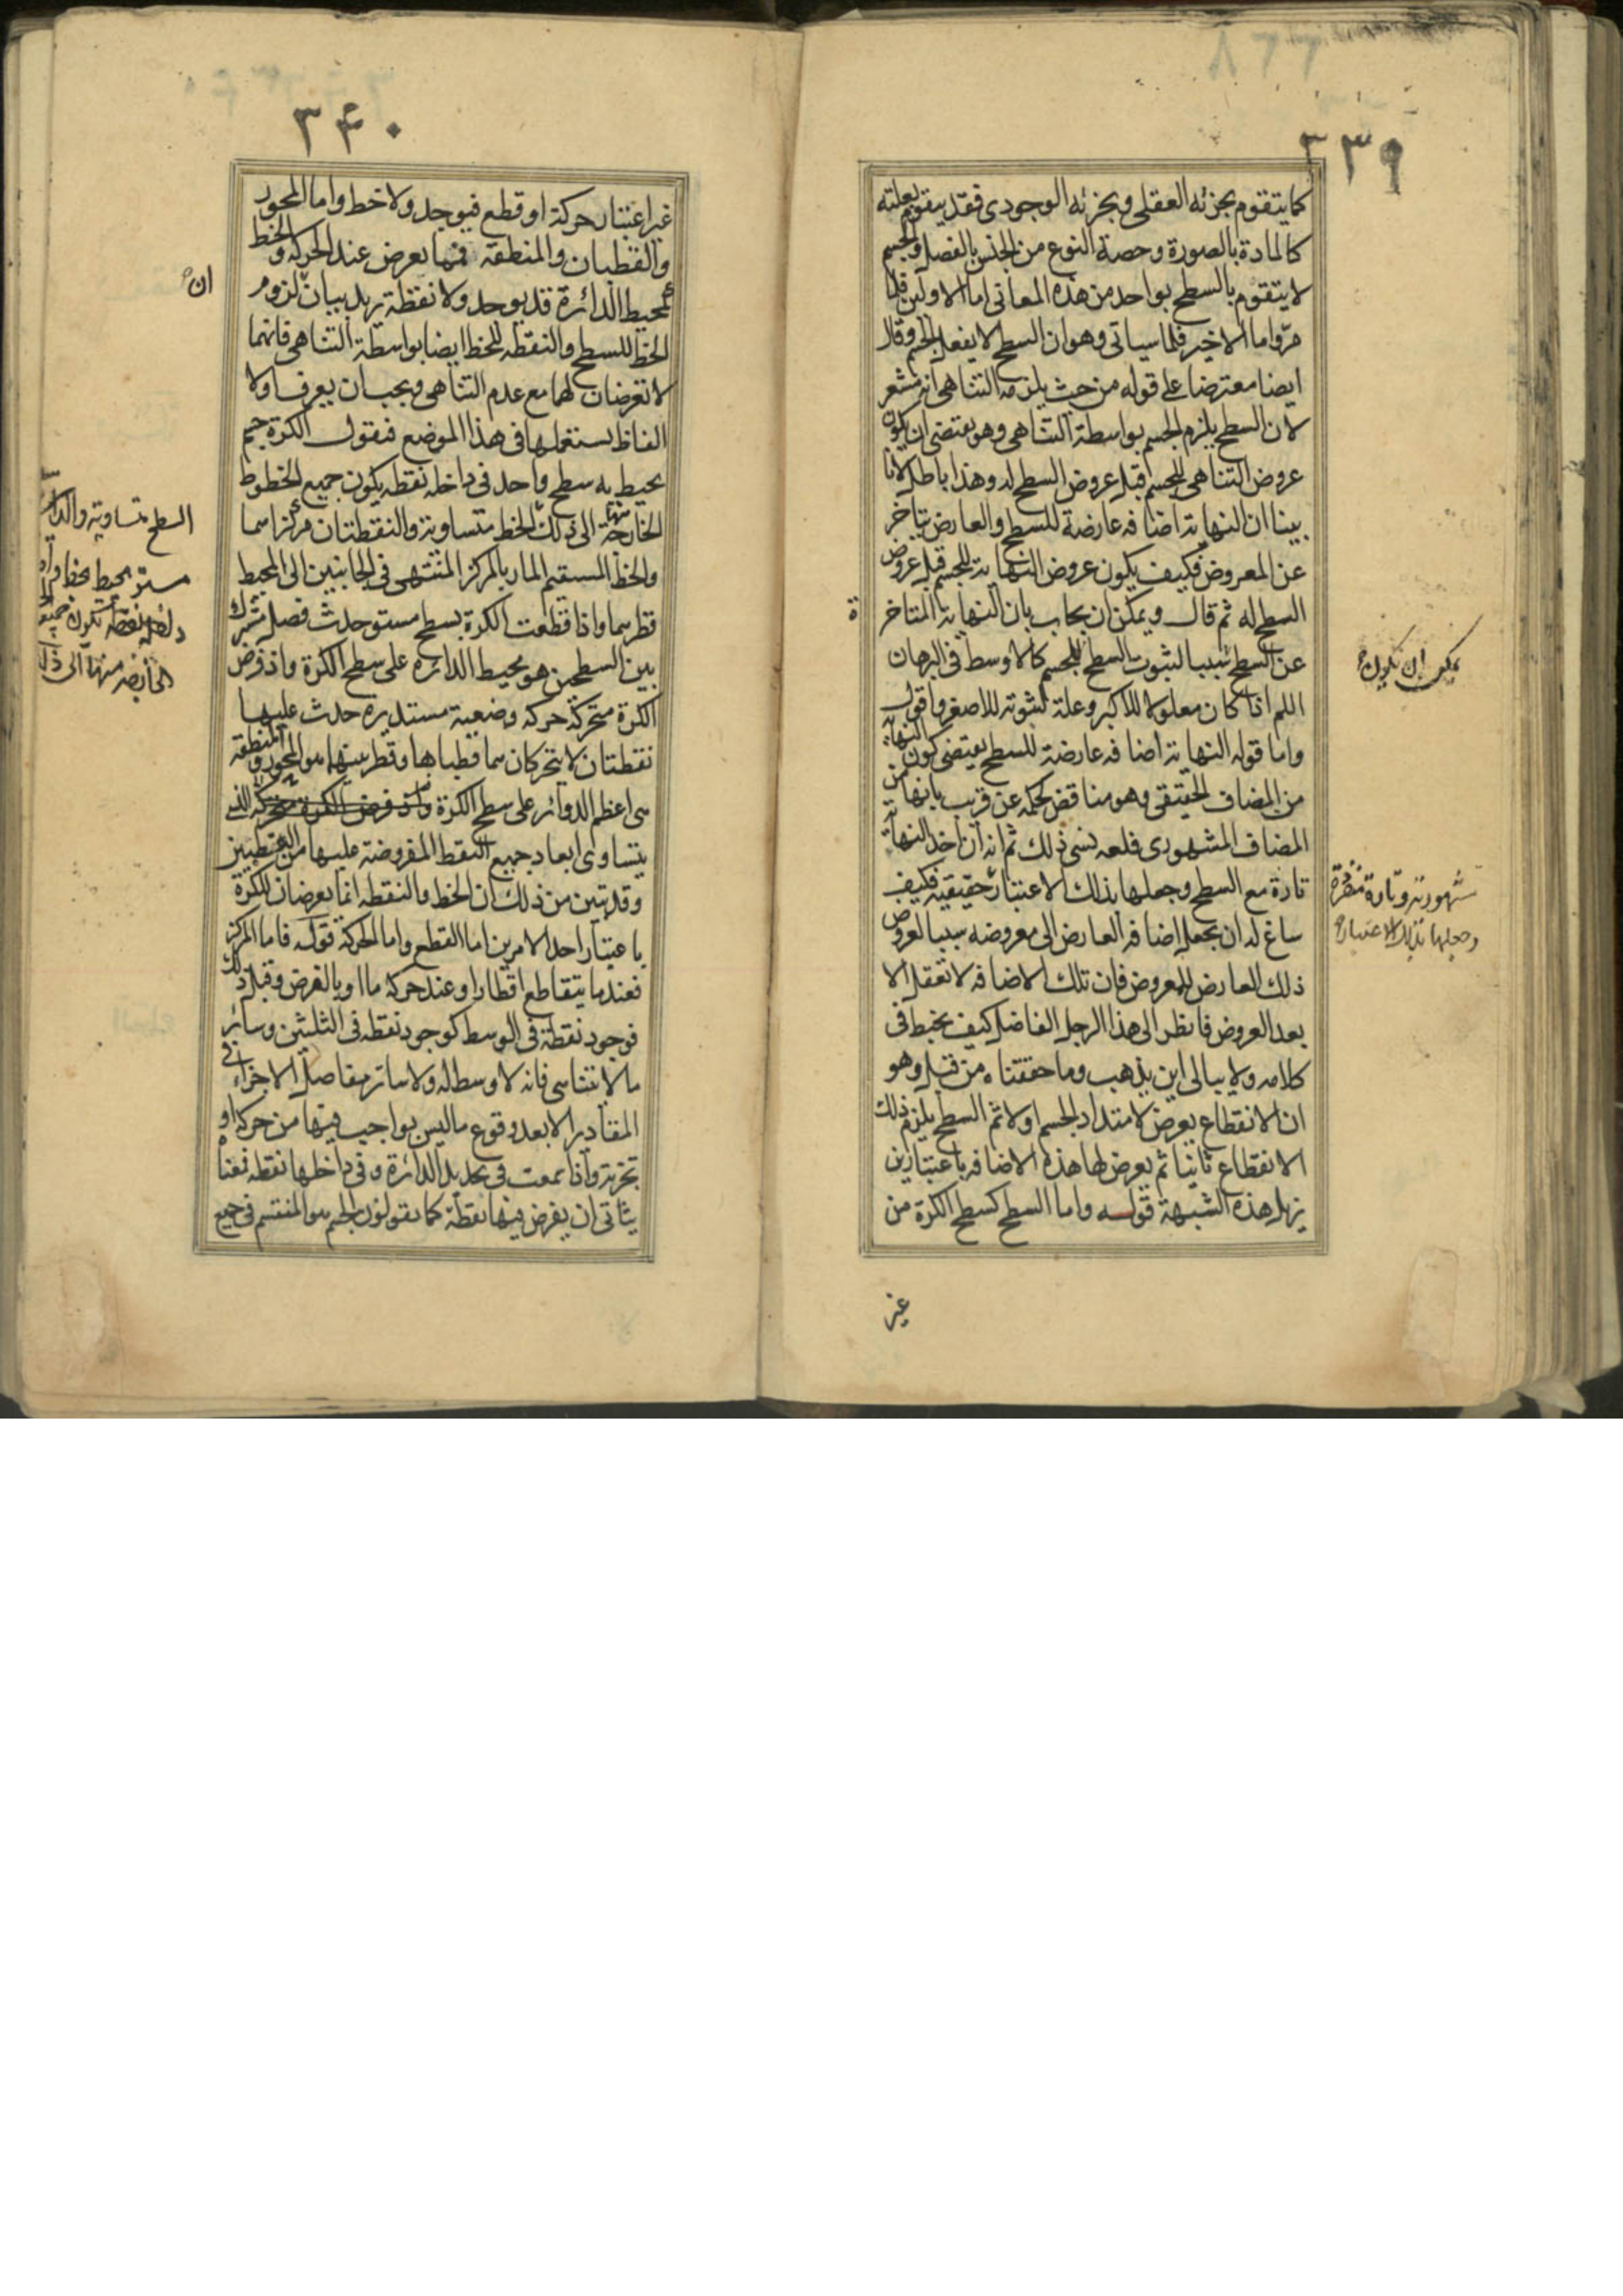 ٣٣٩
كما يتقوم بجزئه العقلى وبجزئه الوجودى فقد يتقوم بعلته
كالمادة بالصورة وحصة النوع من الجنس بالفصل والجسم
لا يتقوم بالسطح بواحد من هذه المعانى اما الاولين فلما
مرّ واما الاخير فلما سياتى وهو ان السطح لا يفعل الجسم وقال
ايضا معترضا على قوله من حيث يلزمه التناهى انه مشعر
لان السطح يلزم الجسم بواسطة التناهى وهو يقتضى ان يكون
عروض التناهى للجسم قبل عروض السطح له وهذا باطل لانا
بينا ان النهاية اضافة عارضة للسطح والعارض يتاخر
عن المعروض فكيف يكون عروض النهاية للجسم قبل عروض
السطح له ثم قال ويمكن ان يجاب بان النهاية المتاخرة
عن السطح سببا لثبوت السطح للجسم كالاوسط فى البرهان
يمكن ان تكون
اللم اذا كان معلولا للاكبر وعلة لثبوته للاصغر واقول
واما قوله النهاية اضافة عارضة للسطح يقتضى كون النهاية
من المضاف الحقيقى وهو مناقض لحكمه عن قريب بانها من
المضاف المشهورى فلعله نسى ذلك ثم انه ان اخذ النهاية
تارة مع السطح وجعلها بذلك الاعتبار حقيقية فكيف
مشهورية وتارة مفردة
وجعلها بذلك الاعتبار
ساغ له ان يجعل اضافة العارض الى معروضه سببا لعروض
ذلك العارض للمعروض فان تلك الاضافة لا تعقل الا
بعد العروض فانظر الى هذا الرجل الفاضل كيف يخبط فى
كلامه ولا يبالى اين يذهب وما حققناه من قبل وهو
ان الانقطاع يعرض لامتداد الجسم اولا ثم السطح يلزم ذلك
الانقطاع ثانيا ثم يعرض لها هذه الاضافة باعتبارين
يزيل هذه الشبهة قوله واما السطح كسطح الكرة من
غير
٣۴٠
غير اعتبار حركة او قطع فيوجد ولا خط واما المحور
والقطبان والمنطقة فمما يعرض عند الحركة والخط
كمحيط الدائرة قد يوجد ولا نقطة يريد بيان لزوم
ان
الخط للسطح والنقطة للخط ايضا بواسطة التناهى فانهما
لا تعرضان لهما مع عدم التناهى ويجب ان يعرف اولا
الفاظ يستعملها فى هذا الموضع فنقول الكرة جسم
يحيط به سطح واحد فى داخله نقطة يكون جميع الخطوط
الخارجة منها الى ذلك الخط متساوية والنقطتان مركزاهما
السطح متساوية والدائرة
والخط المستقيم المار بالمركز المنتهى فى الجانبين الى المحيط
قطرهما واذا قطعت الكرة بسطح مستو حدث فصل مشترك
بين السطحين هو محيط الدائرة على سطح الكرة واذ فرض
الكرة متحركة حركة وضعية مستديرة حدث عليها
نقطتان لا يتحركان هما قطباها وقطر بينهما هو المحور ومنطقة
هى اعظم الدوائر على سطح الكرة واذ فرض الكرة متحركة الذى
يتساوى ابعاد جميع النقط المفروضة عليها من القطبين
وقد تبين من ذلك ان الخط والنقطة انما يعرضان للكرة
باعتبار احد الامرين اما القطع واما الحركة قوله فاما المركز
فعند ما يتقاطع اقطار او عند حركة ما او بالفرض وقبل ذلك
فوجود نقطة فى الوسط كوجود نقطة فى الثلثين وسائر
ما لا يتناهى فانه لا وسط له ولا سائر مفاصل الاجزاء فى
المقادير الا بعد وقوع ما ليس بواجب فيها من حركة او
تجزية واذا سمعت فى تحديد الدائرة وفى داخلها نقطة فمعناه
يتأتى ان يفرض فيها نقطة كما يقولون الجسم هو المنقسم فى جميع